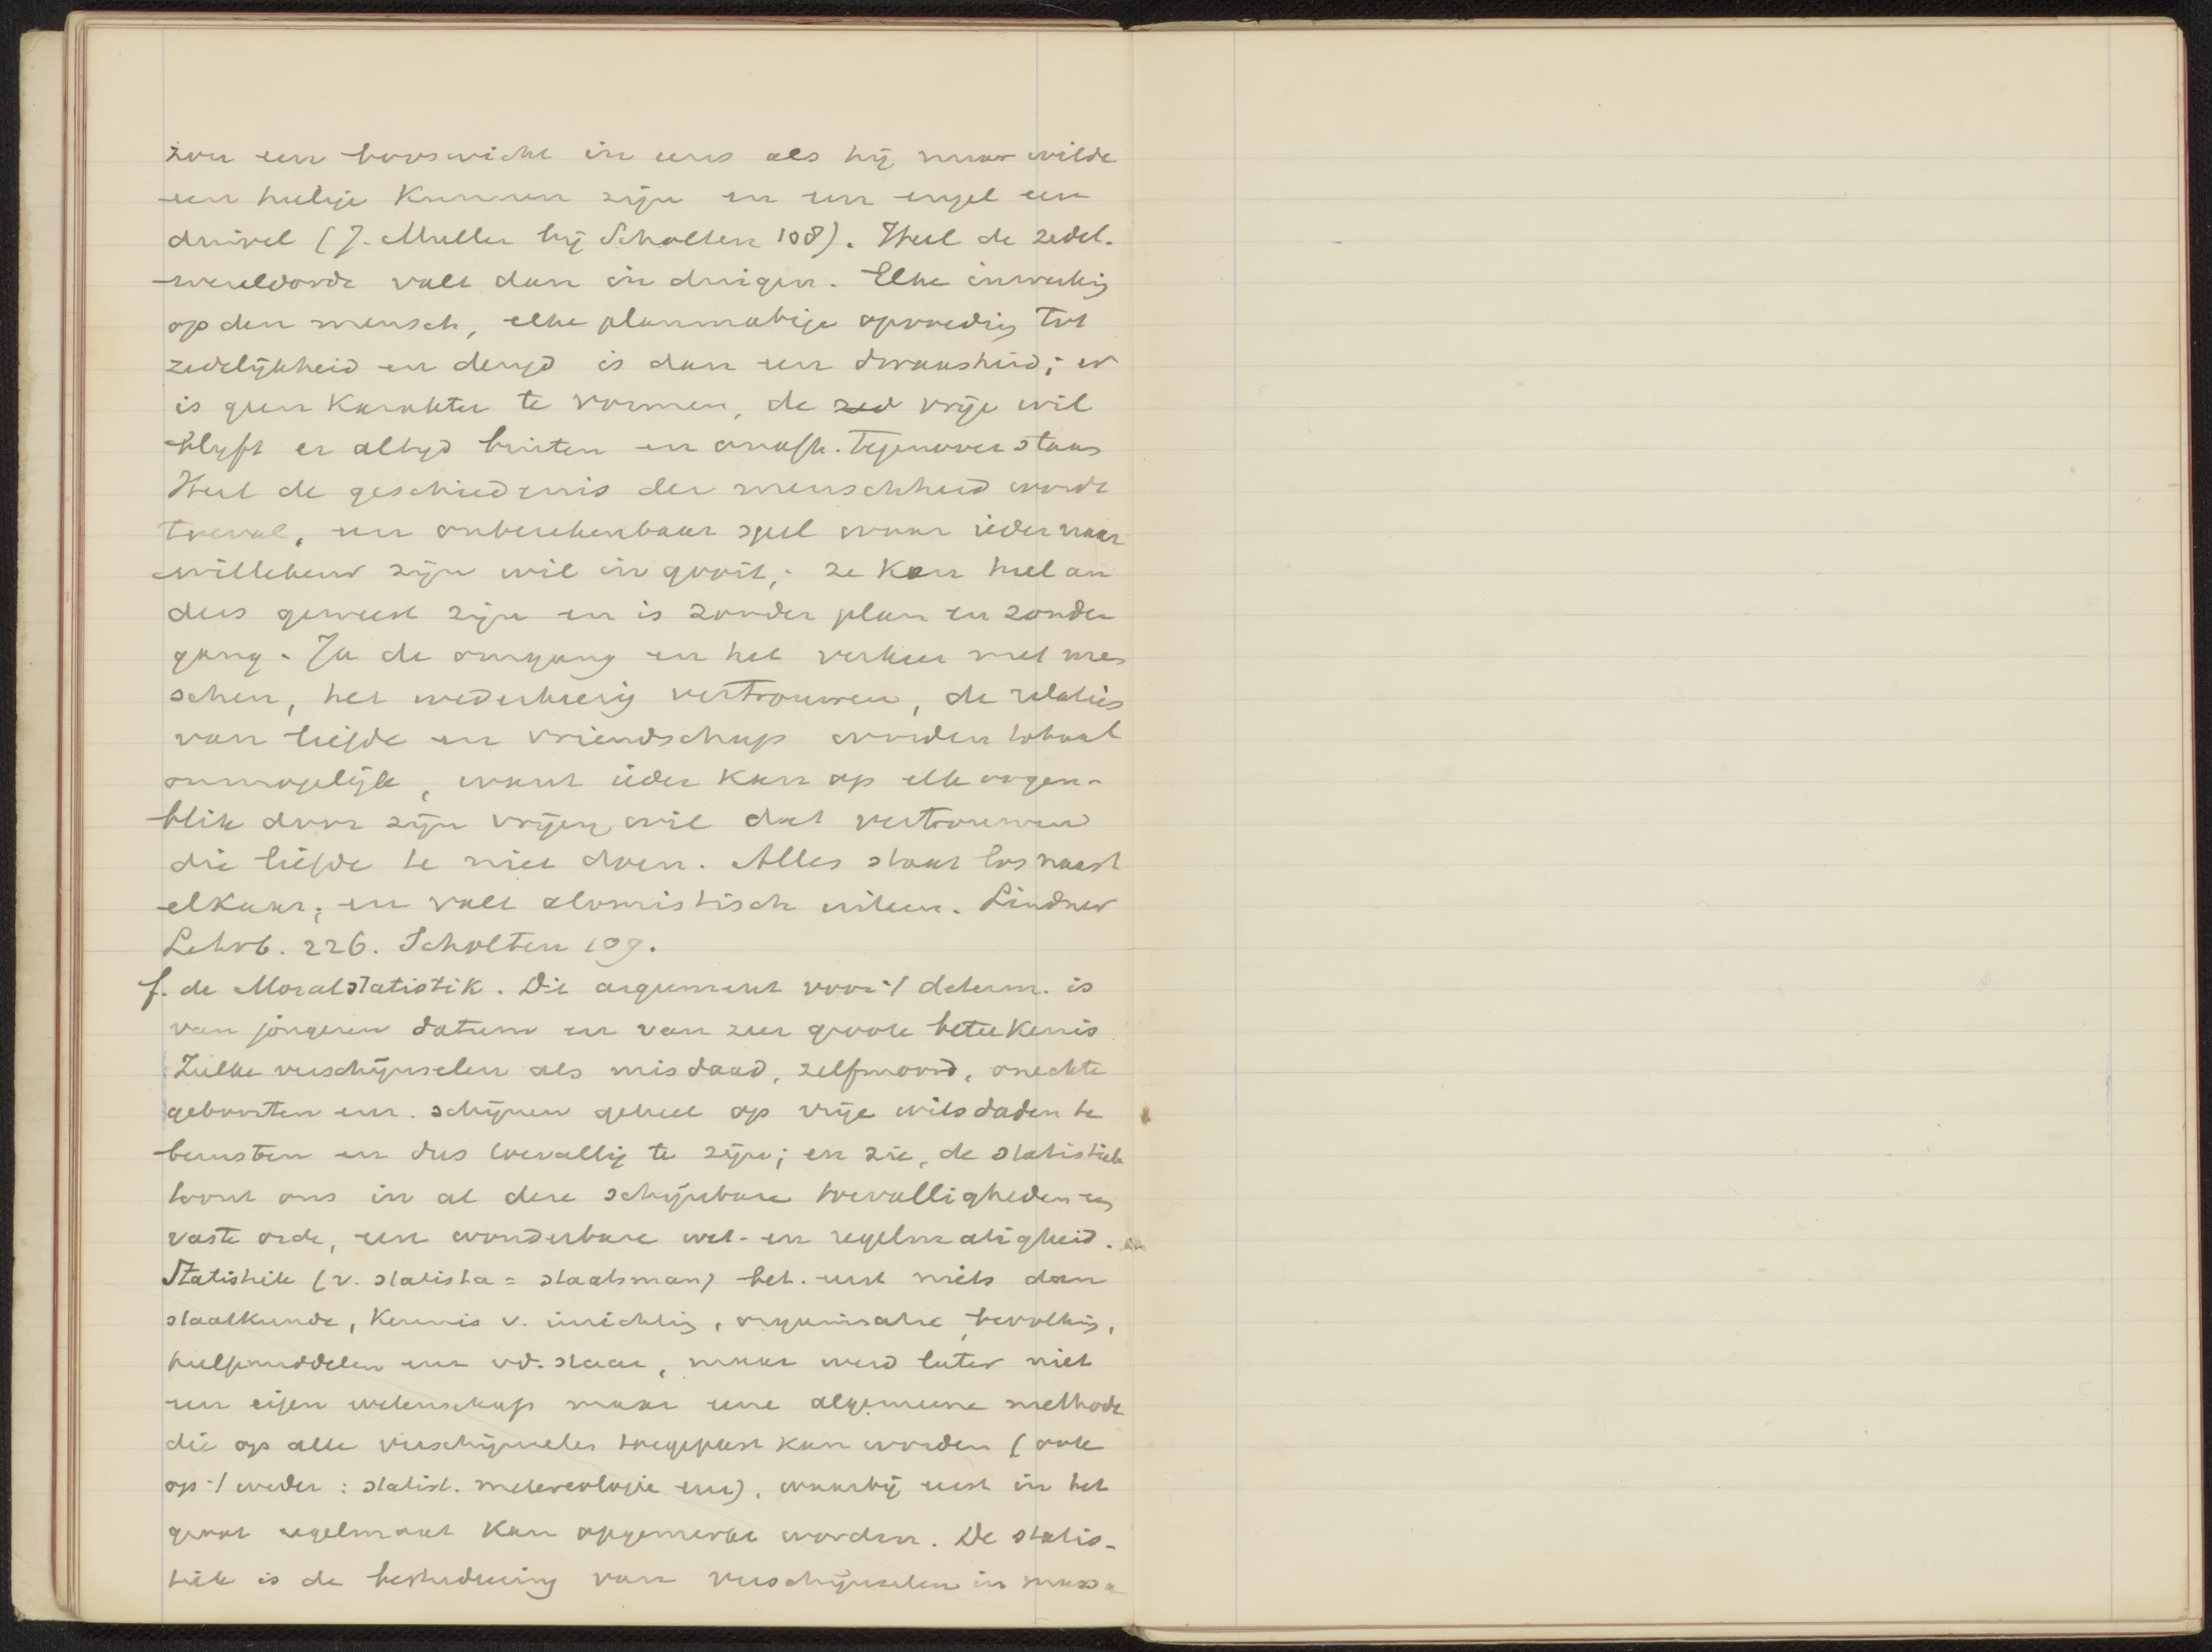 zou een booswicht in eens als hij maar wilde
een heilige kunnen zijn en een engel een
duivel (J. Muller bij Scholten 108). Heel de zedel.
wereldorde valt dan in duigen. Elke inwerking
op den mensch, elke planmatige opvoeding tot
zedelijkheid en deugd is dan een dwaasheid; er
is geen karakter te vormen, de zed vrije wil
blijft er altijd buiten en onafh. tegenover staan
Heel de geschiedenis der menschheid wordt
toeval, een onberekenbaar spel waar ieder naar
willekeur zijn wil in gooit; ze kon heel an
ders geweest zijn en is zonder plan en zonder
gang. Ja de omgang en het verkeer met men
schen, het wederkeerig vertrouwen, de relaties
van liefde en vriendschap worden totaal
onmogelijk, want ieder kan op elk oogen-
blik door zijn vrijen wil dat vertrouwen
die liefde te niet doen. Alles staat los naast
elkaar, en valt atomistisch uiteen. Lindner
Lehrb. 226. Scholten 109.
f. de Moralstatistik. Dit argument voor 't determ. is
van jongeren datum en van zeer groote beteekenis
Zulke verschijnselen als misdaad, zelfmoord, onechte
geboorten enz. schijnen geheel op vrije wilsdaden te
berusten en dus toevallig te zijn; en zie, de statistiek
toont ons in al deze schijnbare toevalligheden een
vaste orde, een wonderbare wet- en regelmatigheid.
Statistiek (v. statista = staatsman) bet. eerst niets dan
staatkunde, kennis v. inrichting, organisatie, bevolking,
hulpmiddelen enz vd. staat, maar werd later niet
een eigen wetenschap maar eene algemeene methode
die op alle verschijnselen toegepast kan worden (ook
op 't weder: statist. metereologie enz), waarbij eerst in het
groot regelmaat kan opgemerkt worden. De statis-
tiek is de bestudeering van verschijnselen in massa